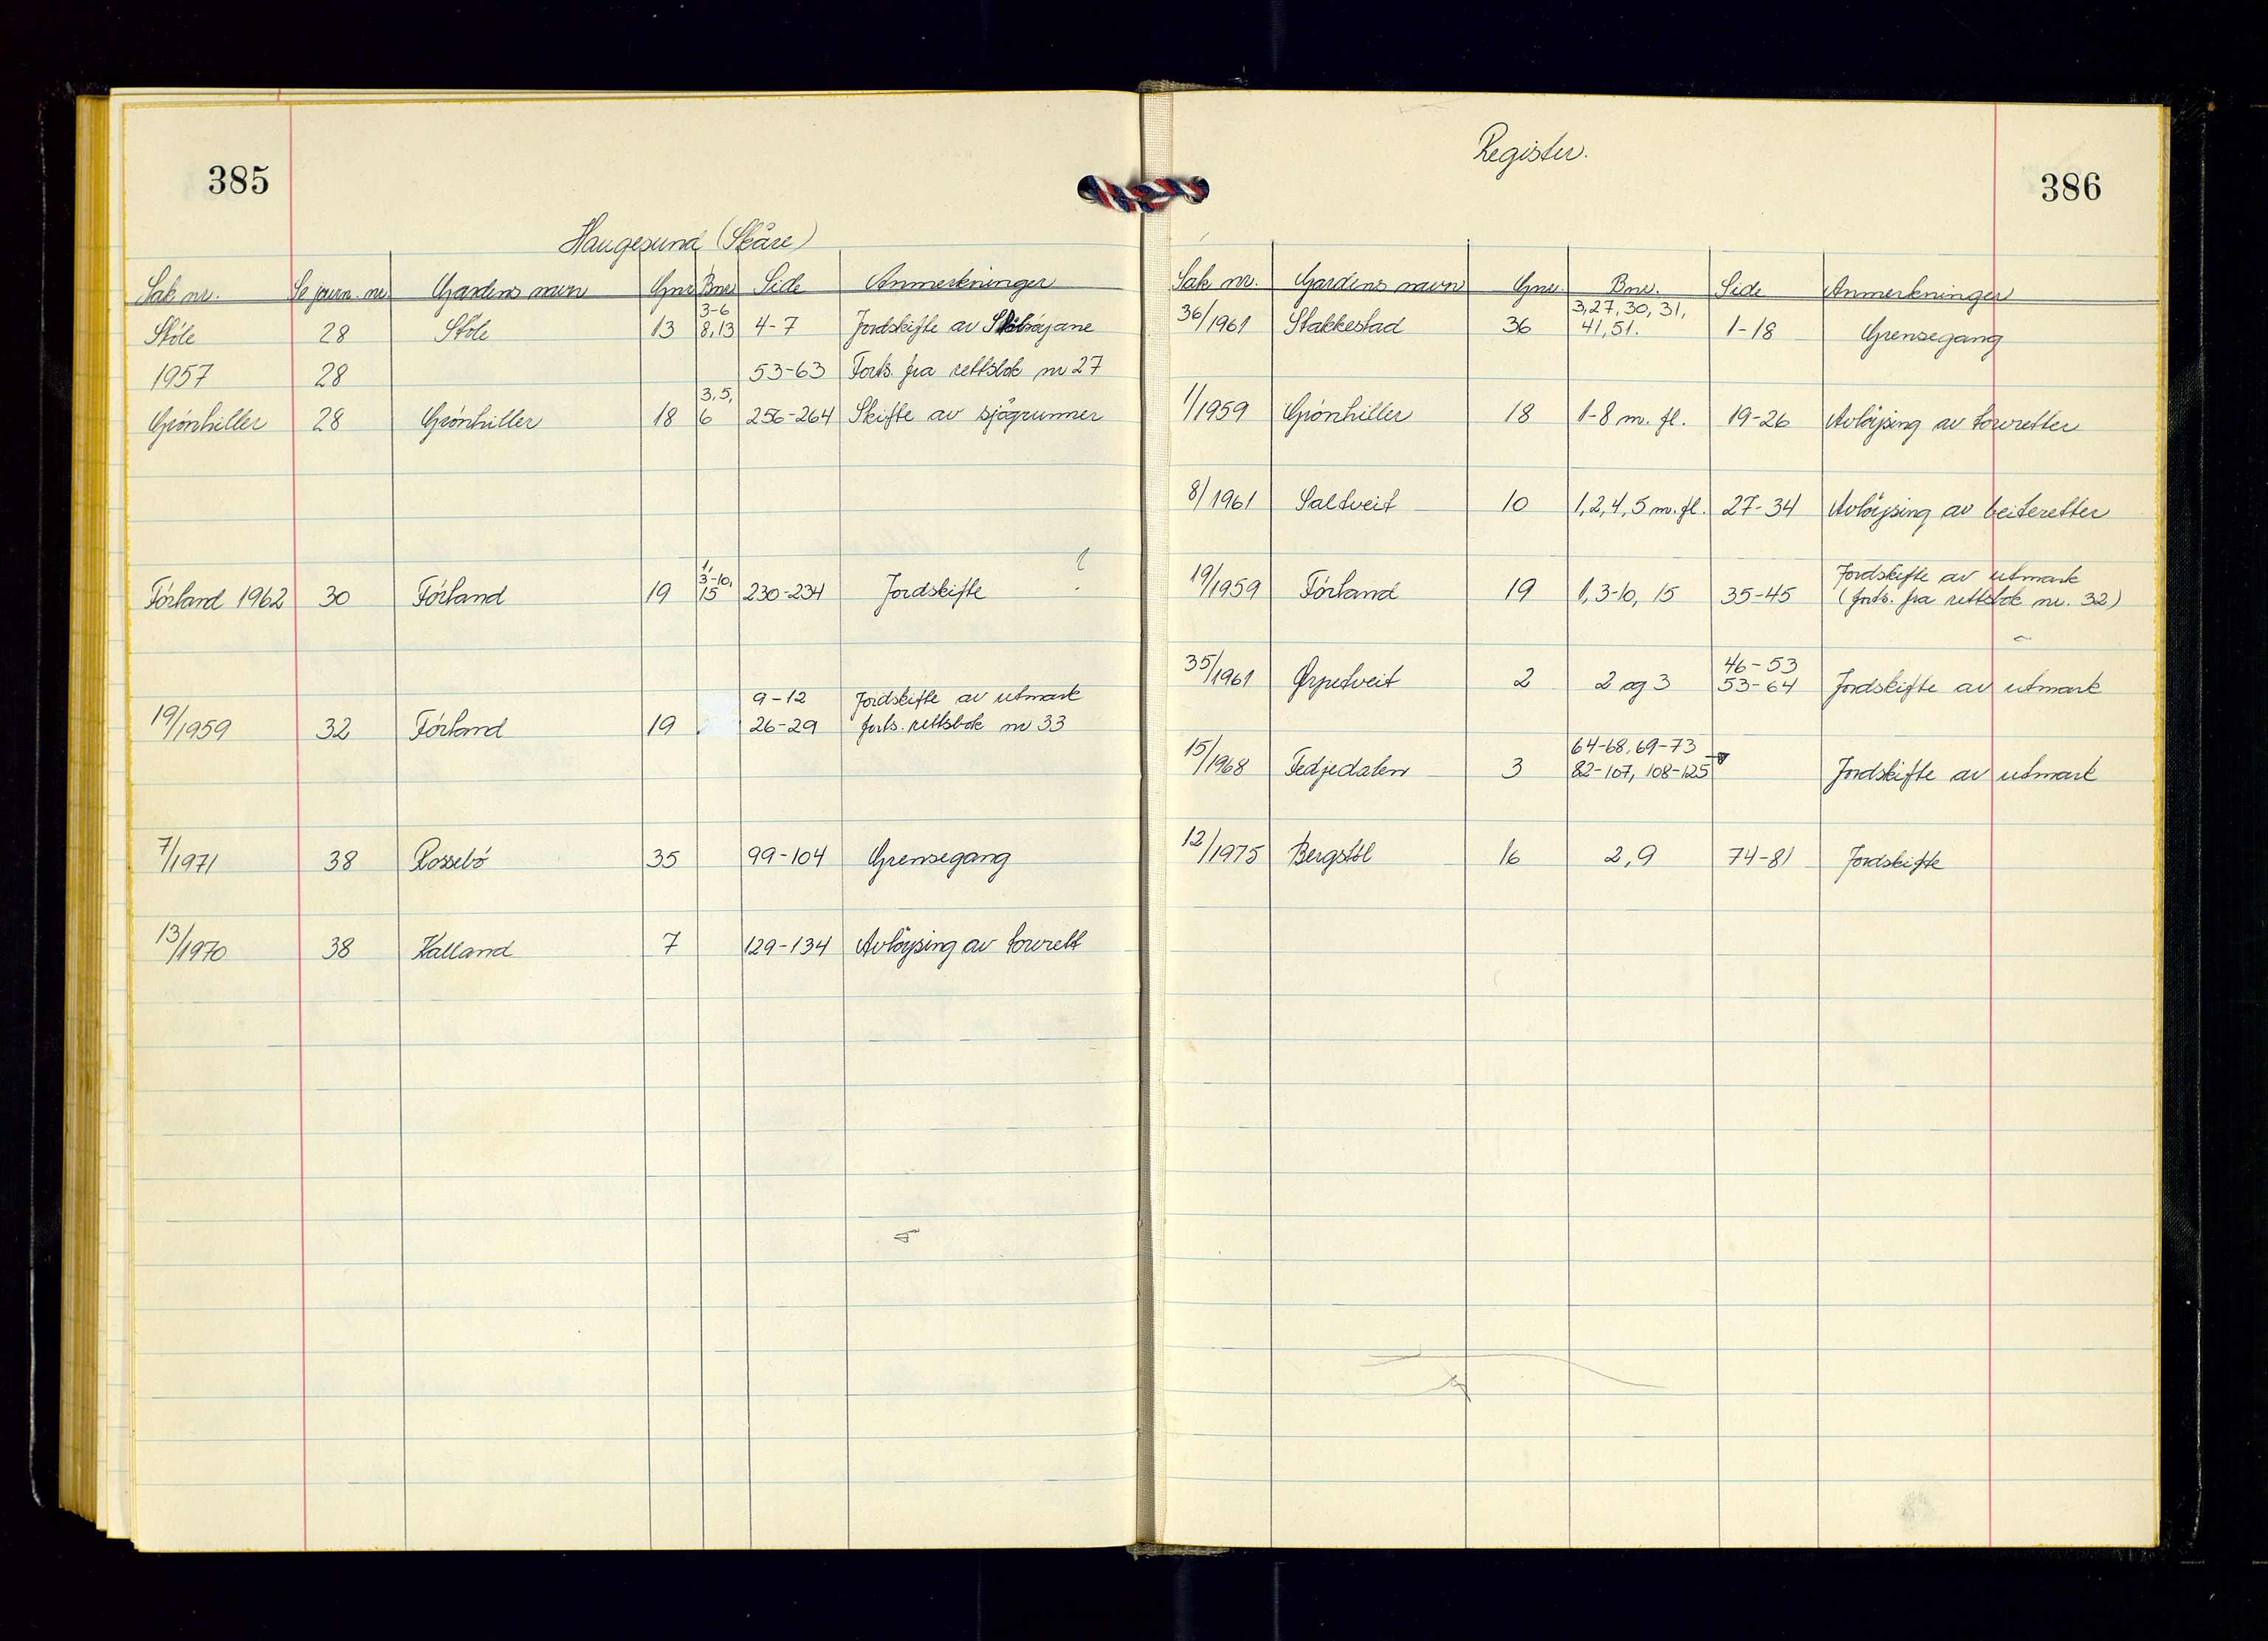 385
Haugesund (Skåre)
Sak nr. Se journ. nr. Gardens navn Gnr Bnr Side Anmerkninger
3-6
Stöle 28 Stöle 13 8,13 4-7 Jordskifte av
1957 28 53-63 Forts. fra rettsbok nr 27
3, 5,
Grönhiller 28 Grönhiller 18 6 256-264 Skifte av sjøgrunner
1,
3-10,
Förland 1962 30 Förland 19 15 230-234 Jordskifte
9-12 Jordskifte av utmark
19/1959 32 Förland 19 26-29 forts. rettsbok nr 33
7/1971 38 Rossebö 35 99-104 Grensegang
13/1970 38 Kalland 7 129-134 Avlöysing av torvrett
Register.
386
Sak nr. Gardens navn Gnr. Bnr. Side Anmerkninger
3, 27, 30, 31,
36/1961 Stakkestad 36 41, 51. 1-18 Grensegang
1/1959 Grönhiller 18 1-8 m. fl. 19-26 Avlöysing av torvretter
8/1961 Saltveit 10 1, 2, 4, 5 m. fl. 27-34 Avlöysing av beiteretter
Jordskifte av utmark
19/1959 Förland 19 1, 3-10, 15 35-45 (forts. fra rettsbok nr. 32)
46-53
35/1961 Ørpetveit 2 2 og 3 53-64 Jordskifte av utmark
64-68, 69-73
15/1968 Fedjedalen 3 82-107, 108-125 Jordskifte av utmark
12/1975 Bergstöl 16 2, 9 74-81 Jordskifte